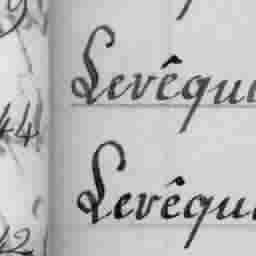 44 Levêqu
42 Levêqu